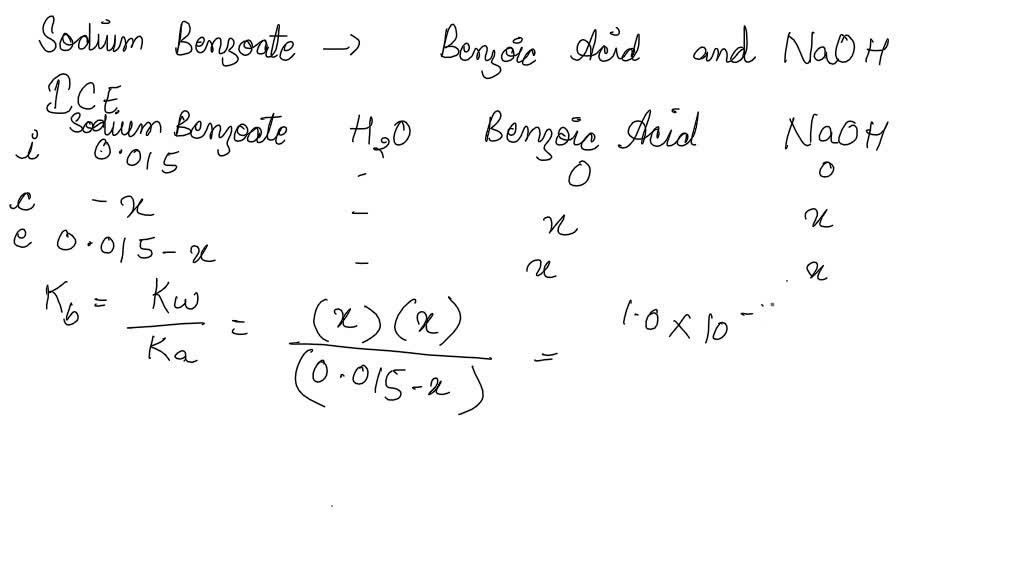 Sodium Benzoate → Benzoic Acid and NaOH
ICE
Sodium Benzoate H₂O Benzoic Acid NaOH
i 0.015 - 0 0
c - x - x x
e 0.015 - x - x x
Kb = Kw / Ka = (x)(x) / (0.015 - x) = 1.0 × 10⁻